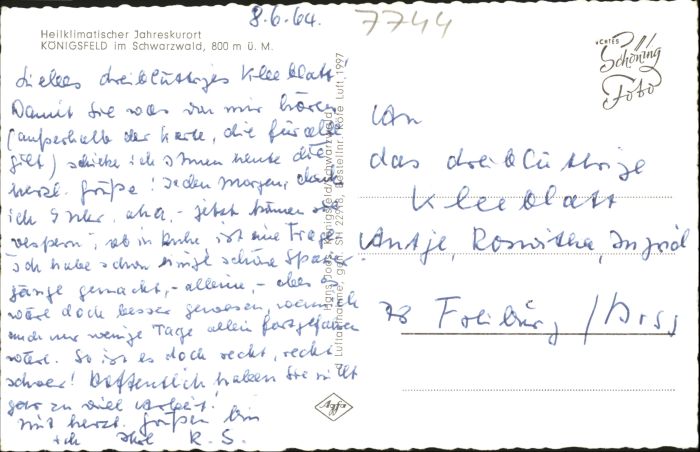 8.6.64.
7744
Heilklimatischer Jahreskurort
KÖNIGSFELD im Schwarzwald, 800 m ü. M.
Liebes dreiblättriges Kleeblatt
Damit Sie was von mir hören
(außerhalb der Karte, die für alle
gilt) schicke ich Ihnen heute die
herzl. Grüße! Jeden Morgen, denk
ich Ihrer, aha, - jetzt können sie
vespern", ob in Ruhe, ist eine Frage.
Ich habe schon einige schöne Spazier-
gänge gemacht, - alleine, - aber es
wäre doch besser gewesen, wenn ich
auch nur wenige Tage allein fortgefahren
wäre. So ist es doch recht, recht
schwer! Hoffentlich haben Sie nicht
gar zu viel Arbeit!
Mit herzl. Grüßen bin
ich Ihre R. S.
ECHTES
Schöning
Foto
An
das dreiblättrige
Kleeblatt
Antje, Roswitha, Ingrid
78 Freiburg / Brsg
Luftaufnahme, gen. SH 22918, Bestellnr. Köfe Luft 1997
Agfa